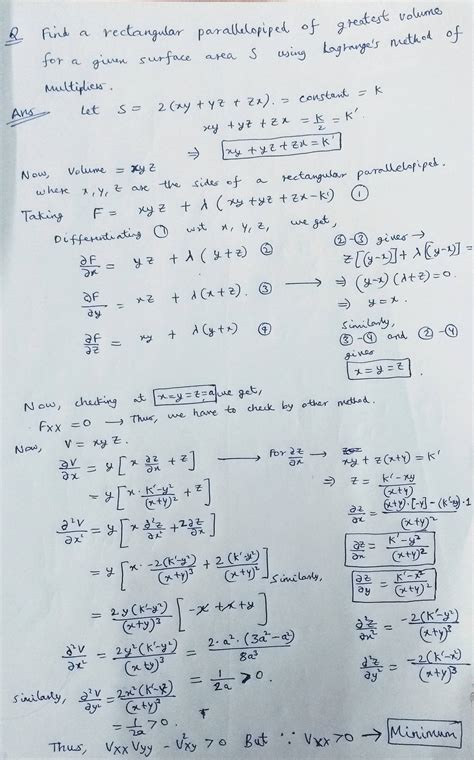 Q Find a rectangular parallelopiped of greatest volume
for a given surface area S using Lagrange's method of
Multipliers.
Ans Let S = 2(xy + yz + zx). = constant = K
xy + yz + zx = K/2 = K'.
⇒ xy + yz + zx = K'
Now, Volume = xyz
where x, y, z are the sides of a rectangular parallelopiped.
Taking F = xyz + λ(xy + yz + zx - K') ①
Differentiating ① wrt x, y, z, we get,
∂F/∂x = yz + λ(y+z) ②
∂F/∂y = xz + λ(x+z). ③
∂F/∂z = xy + λ(y+x) ④
②-③ gives →
z[(y-x)] + λ[(y-x)] =
⇒ (y-x)(λ+z) = 0.
⇒ y = x.
Similarly,
③-④ and ②-④
gives
x = y = z
Now, checking at x = y = z = a, we get,
Fxx = 0 → Thus, we have to check by other method.
Now, V = xyz.
∂V/∂x = y[x ∂z/∂x + z]
= y[x · K'-y²/(x+y)² + z]
∂²V/∂x² = y[x ∂²z/∂x² + 2∂z/∂x]
= y[x · -2(K'-y²)/(x+y)³ + 2(K'-y²)/(x+y)²]
= 2y(K'-y²)/(x+y)³ [-x + x + y]
∂²V/∂x² = 2y²(K'-y²)/(x+y)³ = 2·a²·(3a²-a²)/8a³
= 1/2a > 0.
Similarly, ∂²V/∂y² = 2x²(K'-x²)/(x+y)³
= 1/2a > 0.
For ∂z/∂x →
xy + z(x+y) = K'
⇒ z = K'-xy/(x+y)
∂z/∂x = (x+y)·[-y] - (K'-xy)·1/(x+y)²
∂z/∂x = K'-y²/(x+y)²
Similarly,
∂z/∂y = K'-x²/(x+y)²
∂²z/∂x² = -2(K'-y²)/(x+y)³
∂²z/∂y² = -2(K'-x²)/(x+y)³
Thus, Vxx Vyy - V²xy > 0 But ∵ Vxx > 0 → Minimum